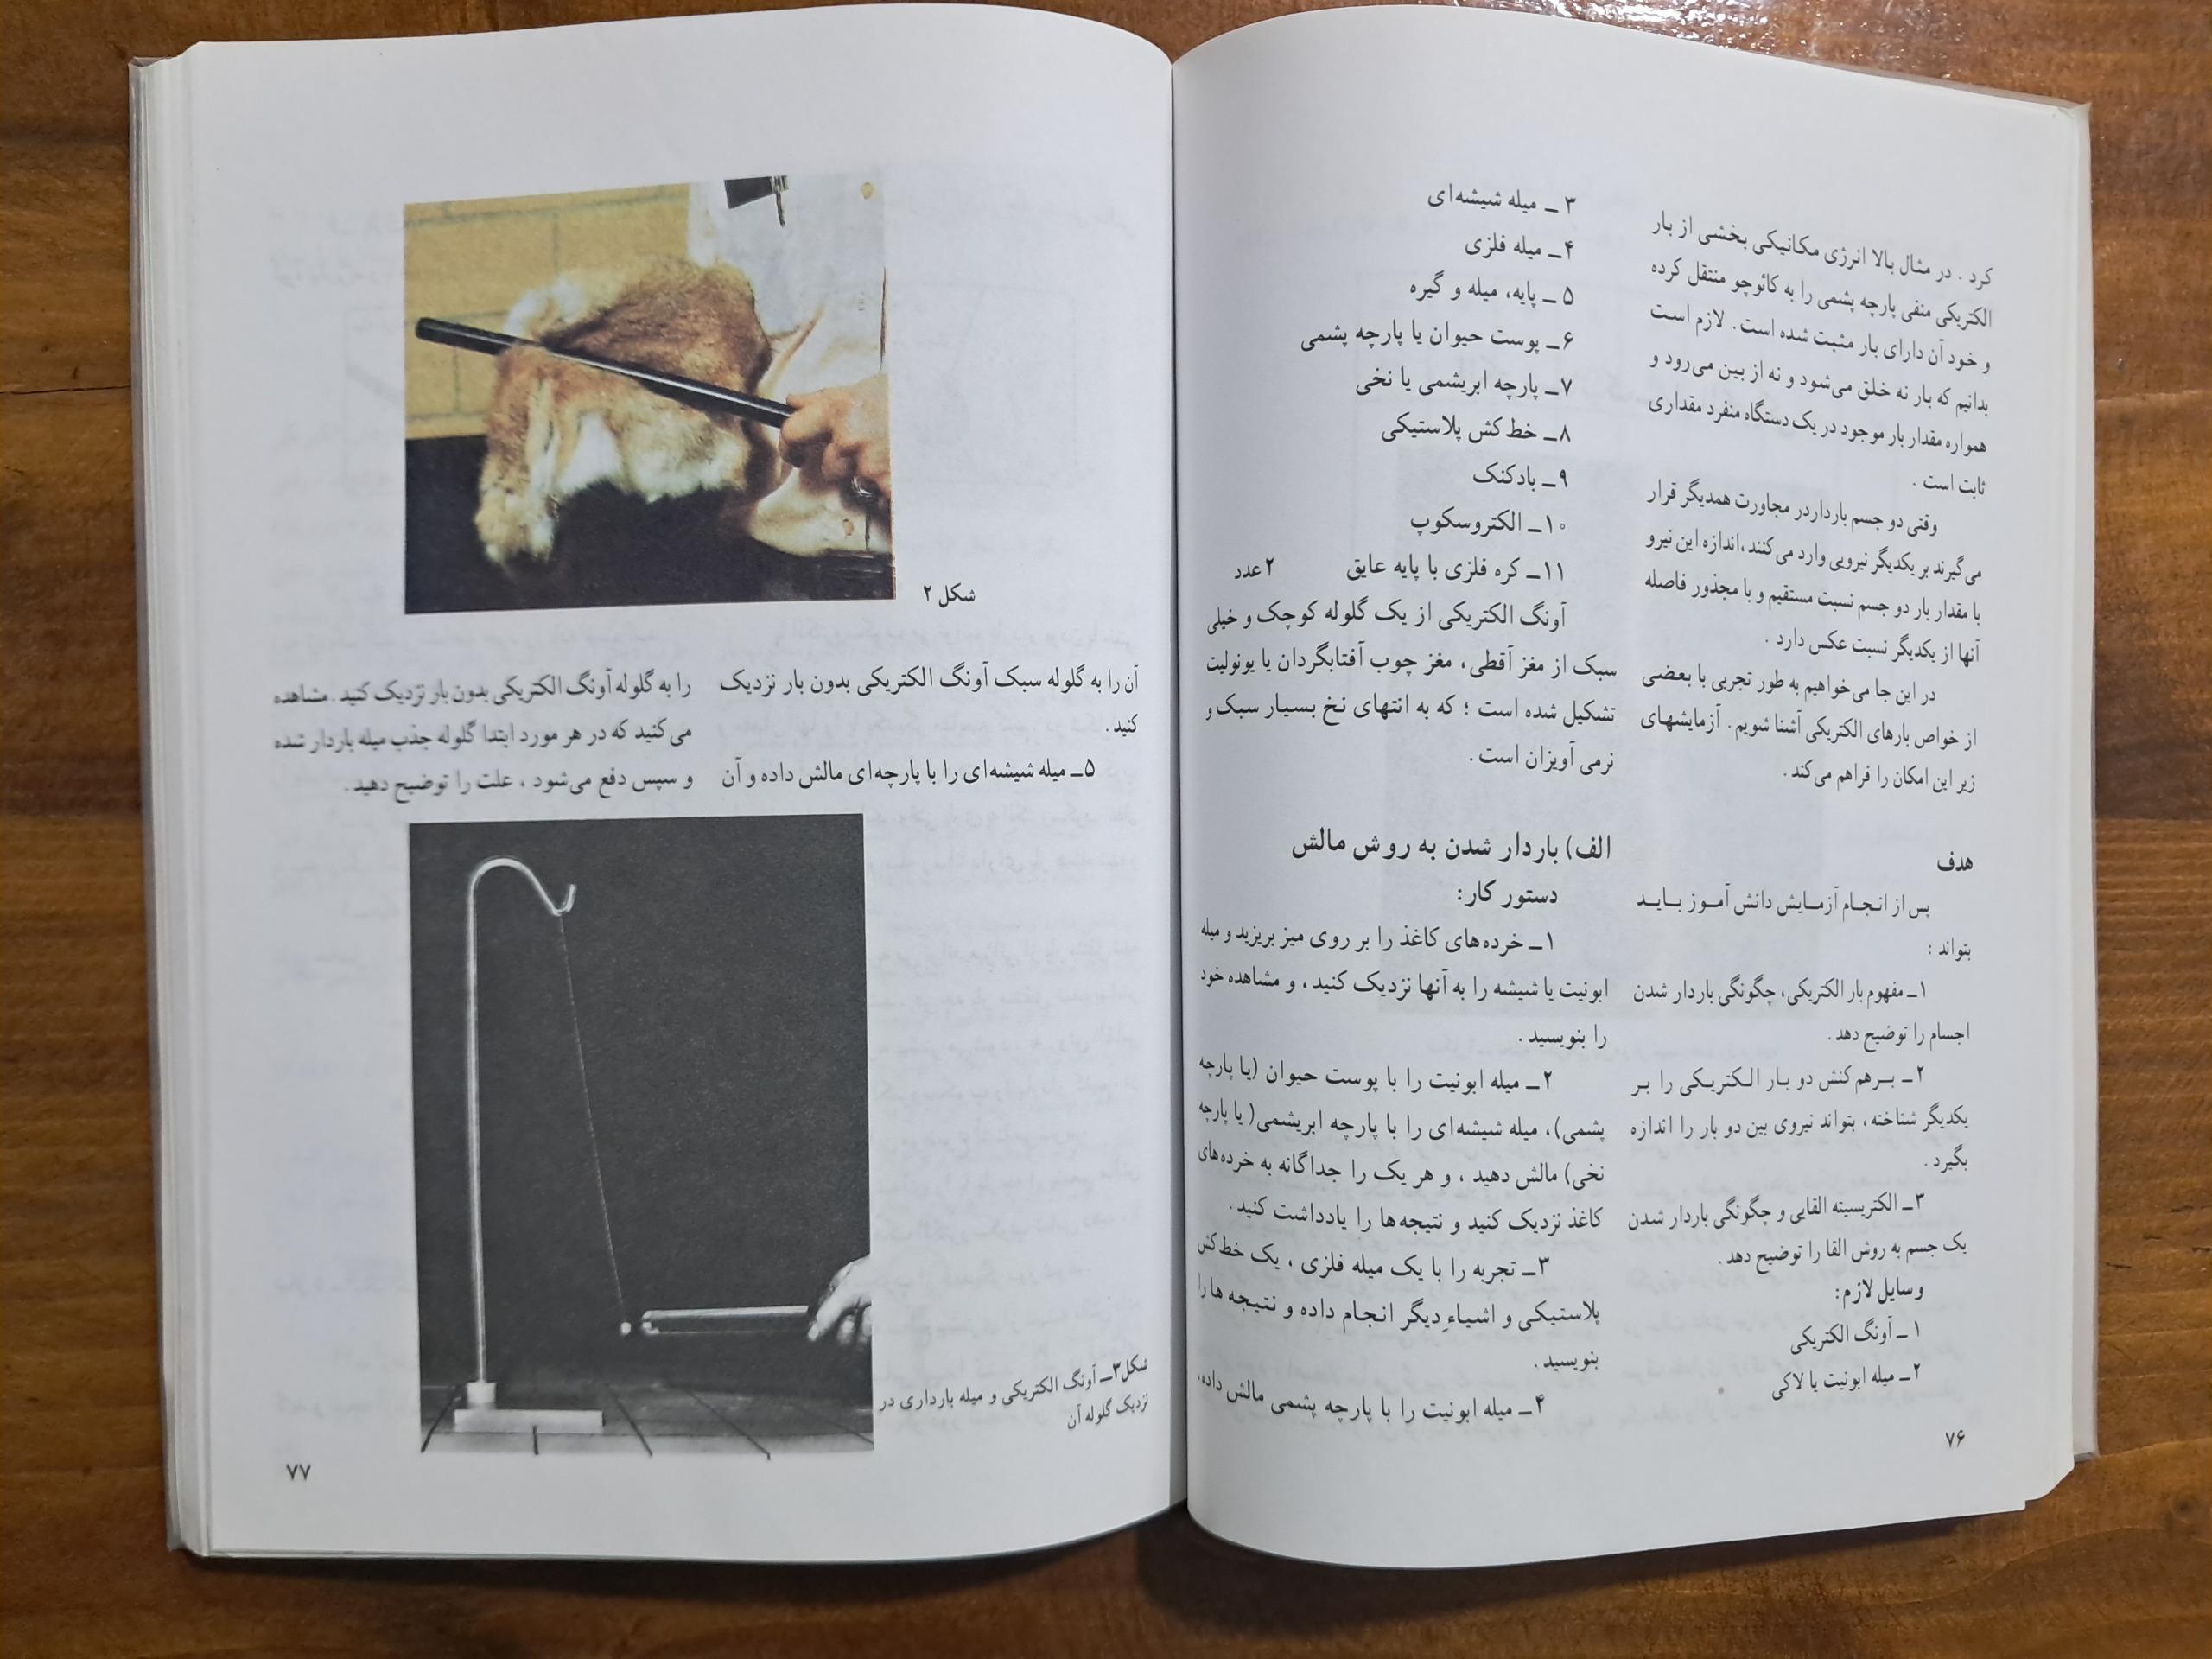 کرد . در مثال بالا انرژی مکانیکی بخشی از بار
الکتریکی منفی پارچه پشمی را به کائوچو منتقل کرده
و خود آن دارای بار مثبت شده است . لازم است
بدانیم که بار نه خلق می‌شود و نه از بین می‌رود و
همواره مقدار بار موجود در یک دستگاه منفرد مقداری
ثابت است .
وقتی دو جسم باردار در مجاورت همدیگر قرار
می‌گیرند بر یکدیگر نیرویی وارد می‌کنند، اندازه این نیرو
با مقدار بار دو جسم نسبت مستقیم و با مجذور فاصله
آنها از یکدیگر نسبت عکس دارد .
در این جا می‌خواهیم به طور تجربی با بعضی
از خواص بارهای الکتریکی آشنا شویم . آزمایشهای
زیر این امکان را فراهم می‌کند .
هدف
پس از انجام آزمایش دانش آموز باید
بتواند :
۱ـ مفهوم بار الکتریکی، چگونگی باردار شدن
اجسام را توضیح دهد .
۲ـ برهم کنش دو بار الکتریکی را بر
یکدیگر شناخته، بتواند نیروی بین دو بار را اندازه
بگیرد .
۳ـ الکتریسیته القایی و چگونگی باردار شدن
یک جسم به روش القا را توضیح دهد .
وسایل لازم:
۱ـ آونگ الکتریکی
۲ـ میله ابونیت یا لاکی
۷۶
۳ـ میله شیشه‌ای
۴ـ میله فلزی
۵ـ پایه، میله و گیره
۶ـ پوست حیوان یا پارچه پشمی
۷ـ پارچه ابریشمی یا نخی
۸ـ خط‌کش پلاستیکی
۹ـ بادکنک
۱۰ـ الکتروسکوپ
۱۱ـ کره فلزی با پایه عایق ۲ عدد
آونگ الکتریکی از یک گلوله کوچک و خیلی
سبک از مغز آقطی، مغز چوب آفتابگردان یا یونولیت
تشکیل شده است ؛ که به انتهای نخ بسیار سبک و
نرمی آویزان است .
الف) باردار شدن به روش مالش
دستور کار:
۱ـ خرده‌های کاغذ را بر روی میز بریزید و میله
ابونیت یا شیشه را به آنها نزدیک کنید ، و مشاهده خود
را بنویسید .
۲ـ میله ابونیت را با پوست حیوان (یا پارچه
پشمی)، میله شیشه‌ای را با پارچه ابریشمی( یا پارچه
نخی) مالش دهید ، و هر یک را جداگانه به خرده‌های
کاغذ نزدیک کنید و نتیجه‌ها را یادداشت کنید .
۳ـ تجربه را با یک میله فلزی ، یک خط‌کش
پلاستیکی و اشیاءِ دیگر انجام داده و نتیجه ها را
بنویسید .
۴ـ میله ابونیت را با پارچه پشمی مالش داده،
شکل ۲
آن را به گلوله سبک آونگ الکتریکی بدون بار نزدیک
کنید .
۵ـ میله شیشه‌ای را با پارچه‌ای مالش داده و آن
را به گلوله آونگ الکتریکی بدون بار نزدیک کنید . مشاهده
می‌کنید که در هر مورد ابتدا گلوله جذب میله باردار شده
و سپس دفع می‌شود ، علت را توضیح دهید .
شکل۳ـ آونگ الکتریکی و میله بارداری در
نزدیک گلوله آن
۷۷